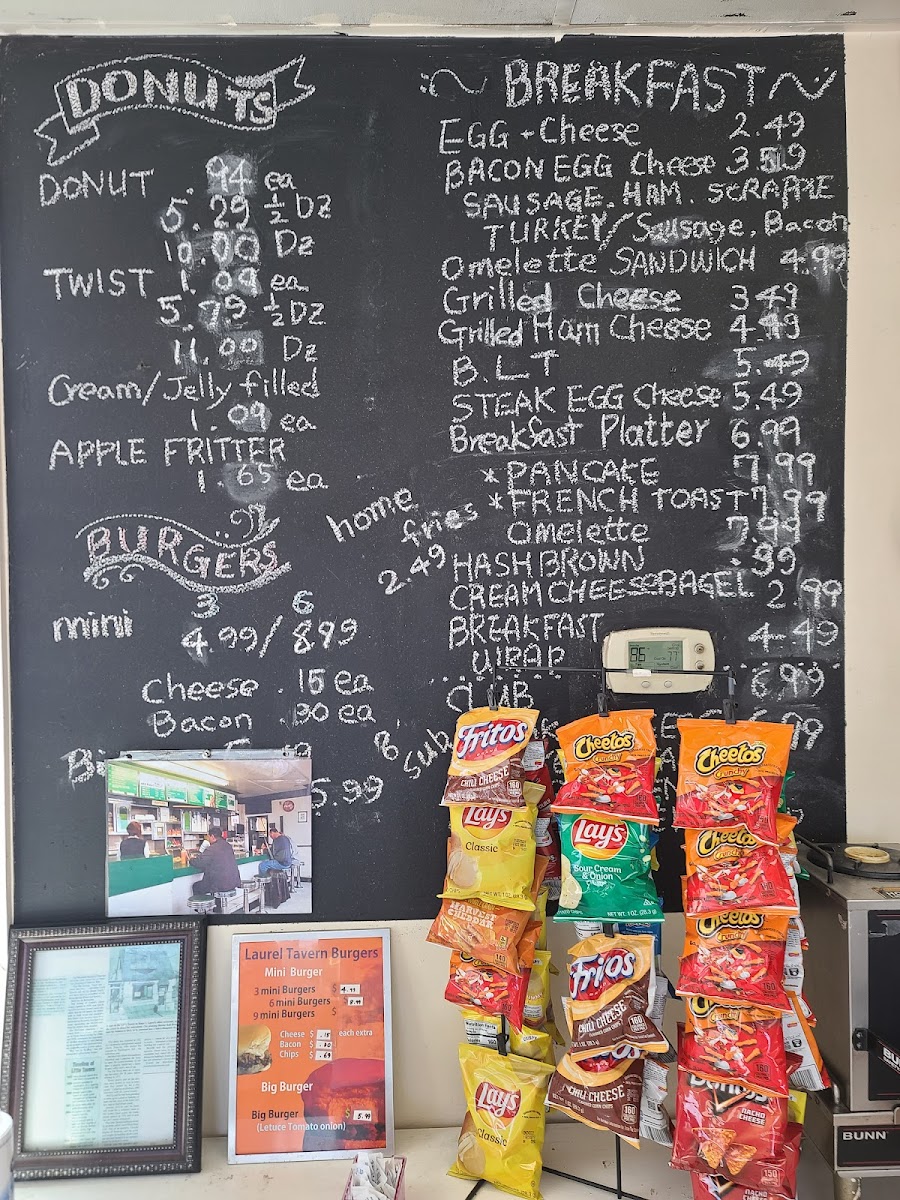 DONUTS
DONUT .94 ea
5.29 ½ Dz
10.00 Dz
TWIST 1.09 ea
5.79 ½ DZ
11.00 Dz
Cream/Jelly filled
1.09 ea
APPLE FRITTER
1.65 ea
BURGERS
3 6
mini 4.99/899
Cheese .15 ea
Bacon .30 ea
5.99
home
fries
2.49
BREAKFAST
EGG + Cheese 2.49
BACON EGG Cheese
SAUSAGE. HAM. SCRAPPLE
TURKEY/Sausage. Bacon
Omelette SANDWICH 4.99
Grilled Cheese 3.49
Grilled Ham Cheese 4.49
B.L.T 5.49
STEAK EGG Cheese 5.49
Breakfast Platter 6.99
*PANCAKE 7.99
*FRENCH TOAST 7.99
Omelette 7.99
HASH BROWN .99
CREAM CHEESE BAGEL 2.99
BREAKFAST 4.49
WRAP
CLUB 6.99
8"
Sub
6.99
Laurel Tavern Burgers
Mini Burger
3 mini Burgers $ 4.99
6 mini Burgers $ 8.99
9 mini Burgers $
Cheese $ .15 each extra
Bacon $ .30
Chips $ .69
Big Burger
Big Burger $ 5.99
(Letuce Tomato onion)
Fritos
CHILI CHEESE
Cheetos
Crunchy
Cheetos
Crunchy
Lay's
Classic
Lay's
Sour Cream
& Onion
NET WT. 1 OZ. (28.3 g)
Cheetos
HARVEST
CHEDDAR
Cheetos
Fritos
CHILI CHEESE
Cheetos
CHILI CHEESE
Lay's
Classic
Doritos
NACHO
CHEESE
BUNN